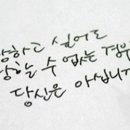 하고 싶어도
할 수 없는 경우
당신은 아십니까